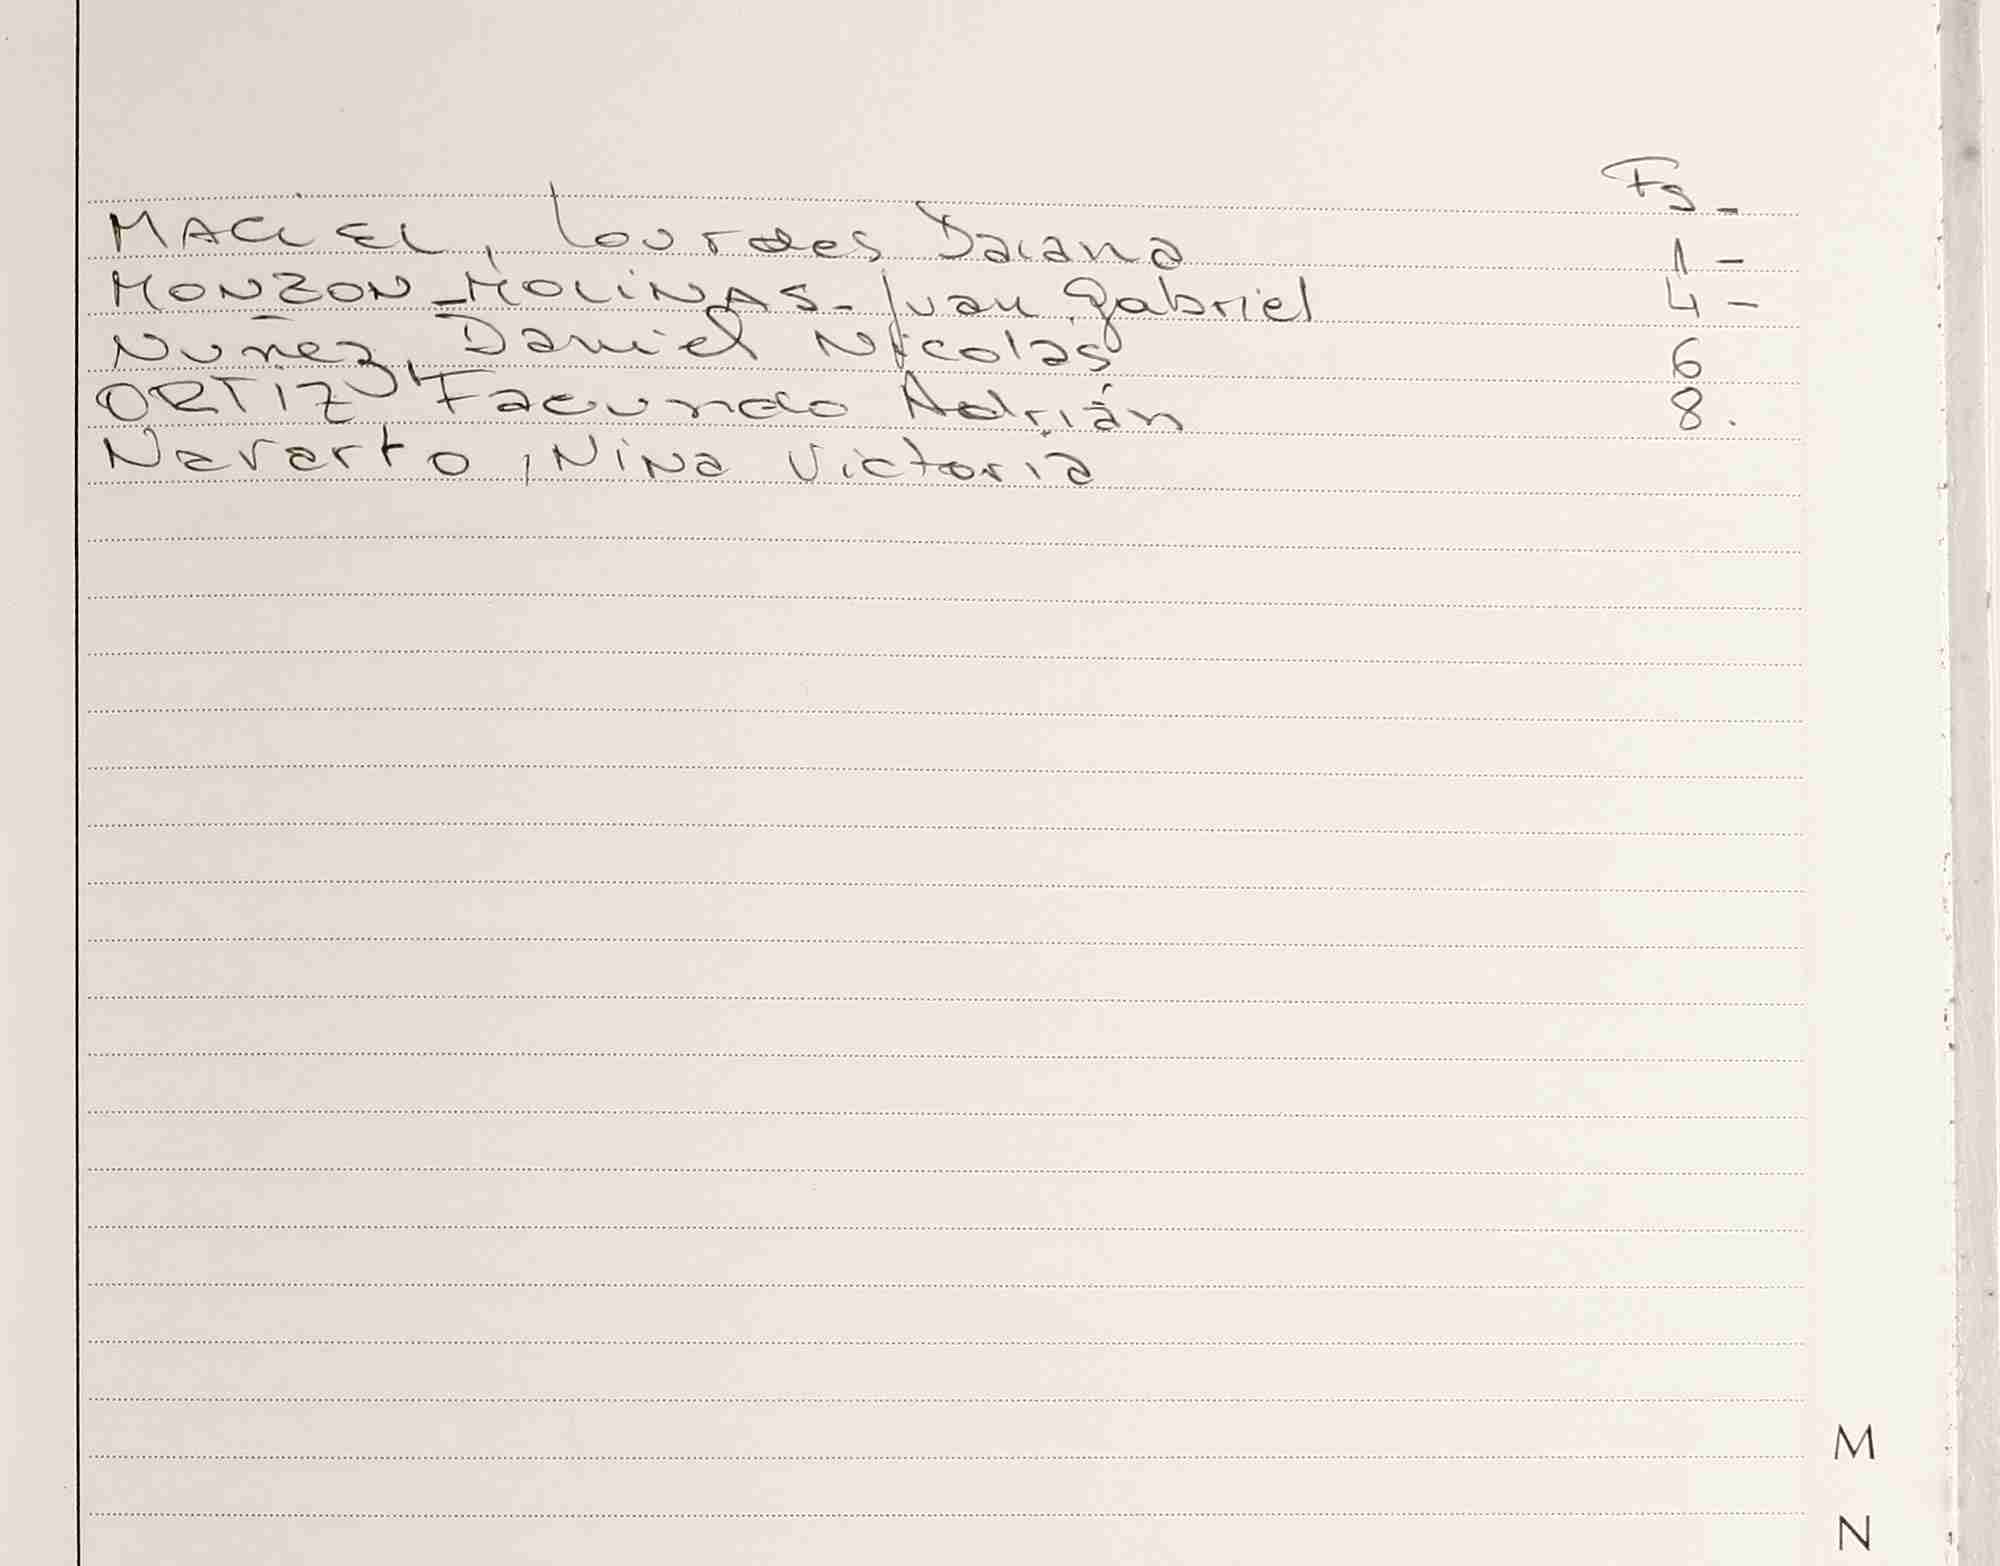 Fs-
MACIEL, Lourdes Daiana 1-
MONZON-MOLINAS-Juan Gabriel 4-
Nuñez, Daniel Nicolas 6
ORTIZ, Facundo Adrián 8.
Navarro, Nina Victoria
M
N